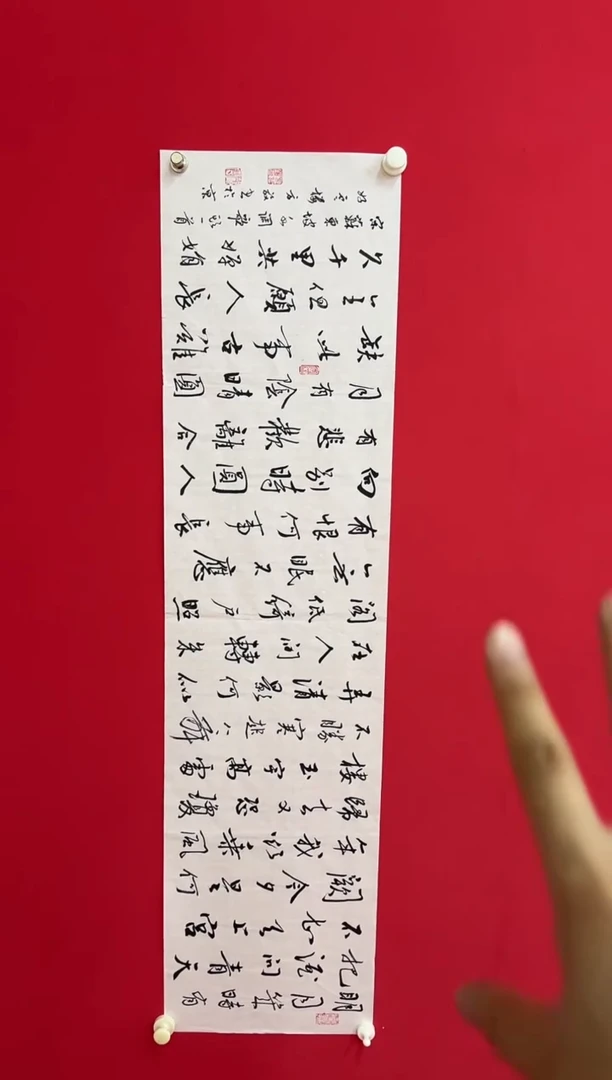 明月幾時有
把酒問青天
不知天上宮
闕今夕是何
年我欲乘風
歸去又恐瓊
樓玉宇高處
不勝寒起舞
弄清影何似
在人間轉朱
閣低綺戶照
無眠不應
有恨何事長
向別時圓人
有悲歡離合
月有陰晴圓
缺此事古難
全但願人長
久千里共嬋娟
宋蘇東坡水調歌頭一首